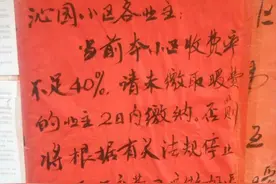 沁园小区各业主:
当前本小区收费率
不足40%。请未缴取暖费
的业主2日内缴纳。否则
将根据有关法规停止
五